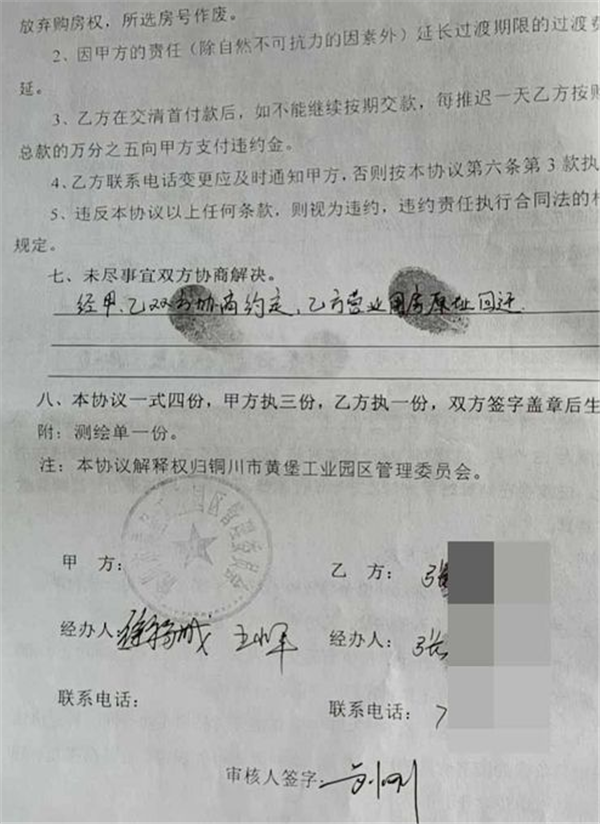 放弃购房权，所选房号作废。
2、因甲方的责任（除自然不可抗力的因素外）延长过渡期限的过渡费
延。
3、乙方在交清首付款后，如不能继续按期交款，每推迟一天乙方按购
总款的万分之五向甲方支付违约金。
4、乙方联系电话变更应及时通知甲方，否则按本协议第六条第3款执
5、违反本协议以上任何条款，则视为违约，违约责任执行合同法的相
规定。
七、未尽事宜双方协商解决。
经甲、乙双方协商约定，乙方营业用房原址回迁
八、本协议一式四份，甲方执三份，乙方执一份，双方签字盖章后生
附：测绘单一份。
注：本协议解释权归铜川市黄堡工业园区管理委员会。
园区管理委员会
甲 方：
乙 方：张
经办人：
经办人：张
联系电话：
联系电话：
审核人签字：